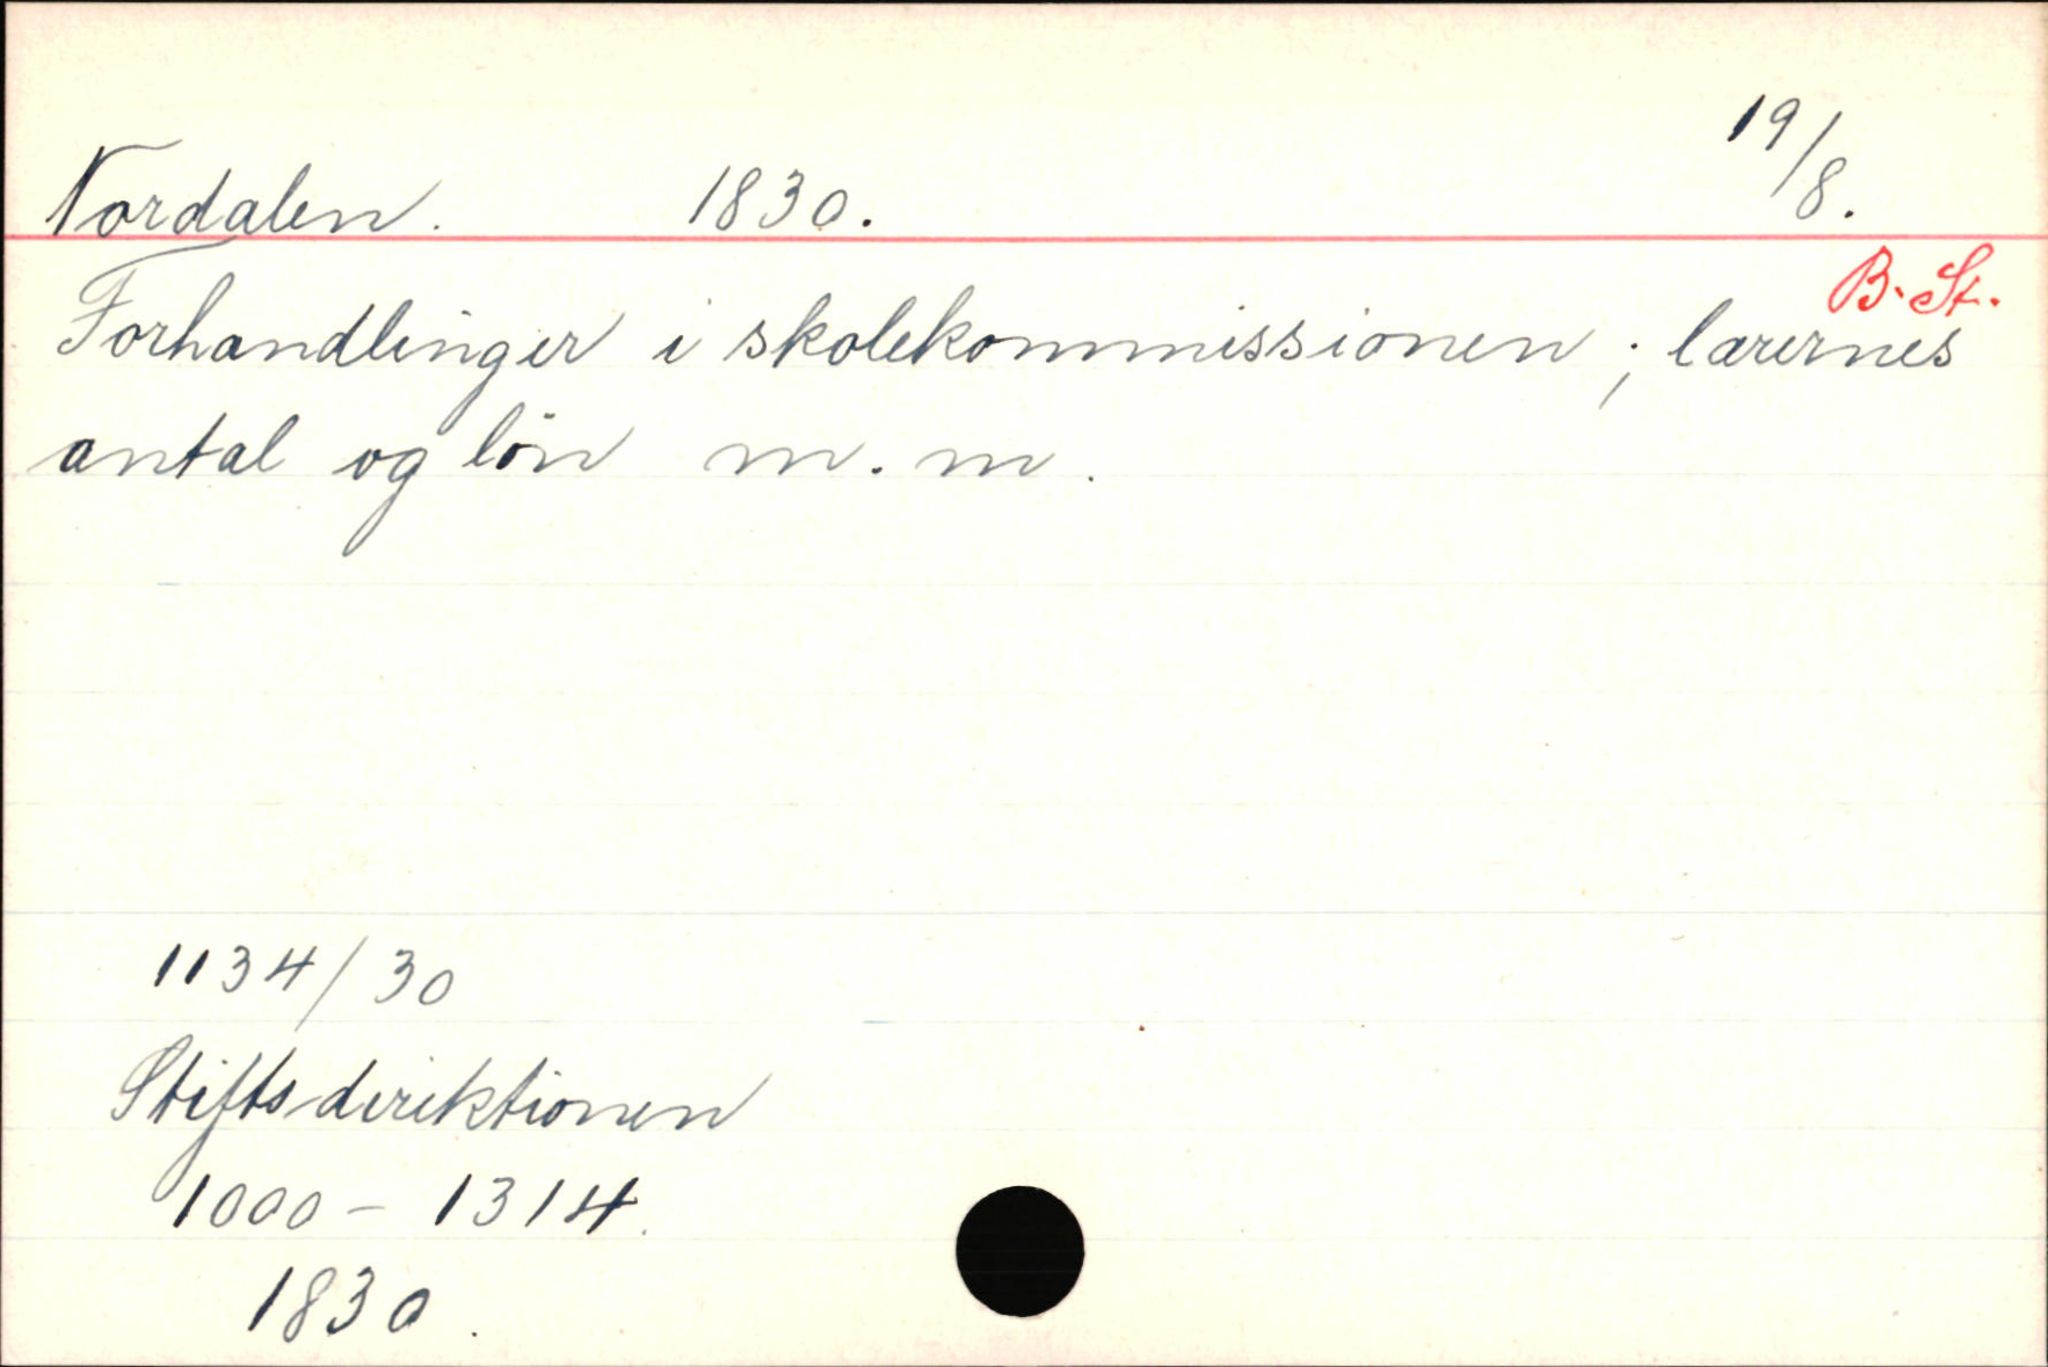 Nordalen. 1830. 19/8.
B. St.
Forhandlinger i skolekommissionen; lærernes
antal og lön m. m.
1134/30
Stiftsdirektionen
1000 - 1314.
1830.